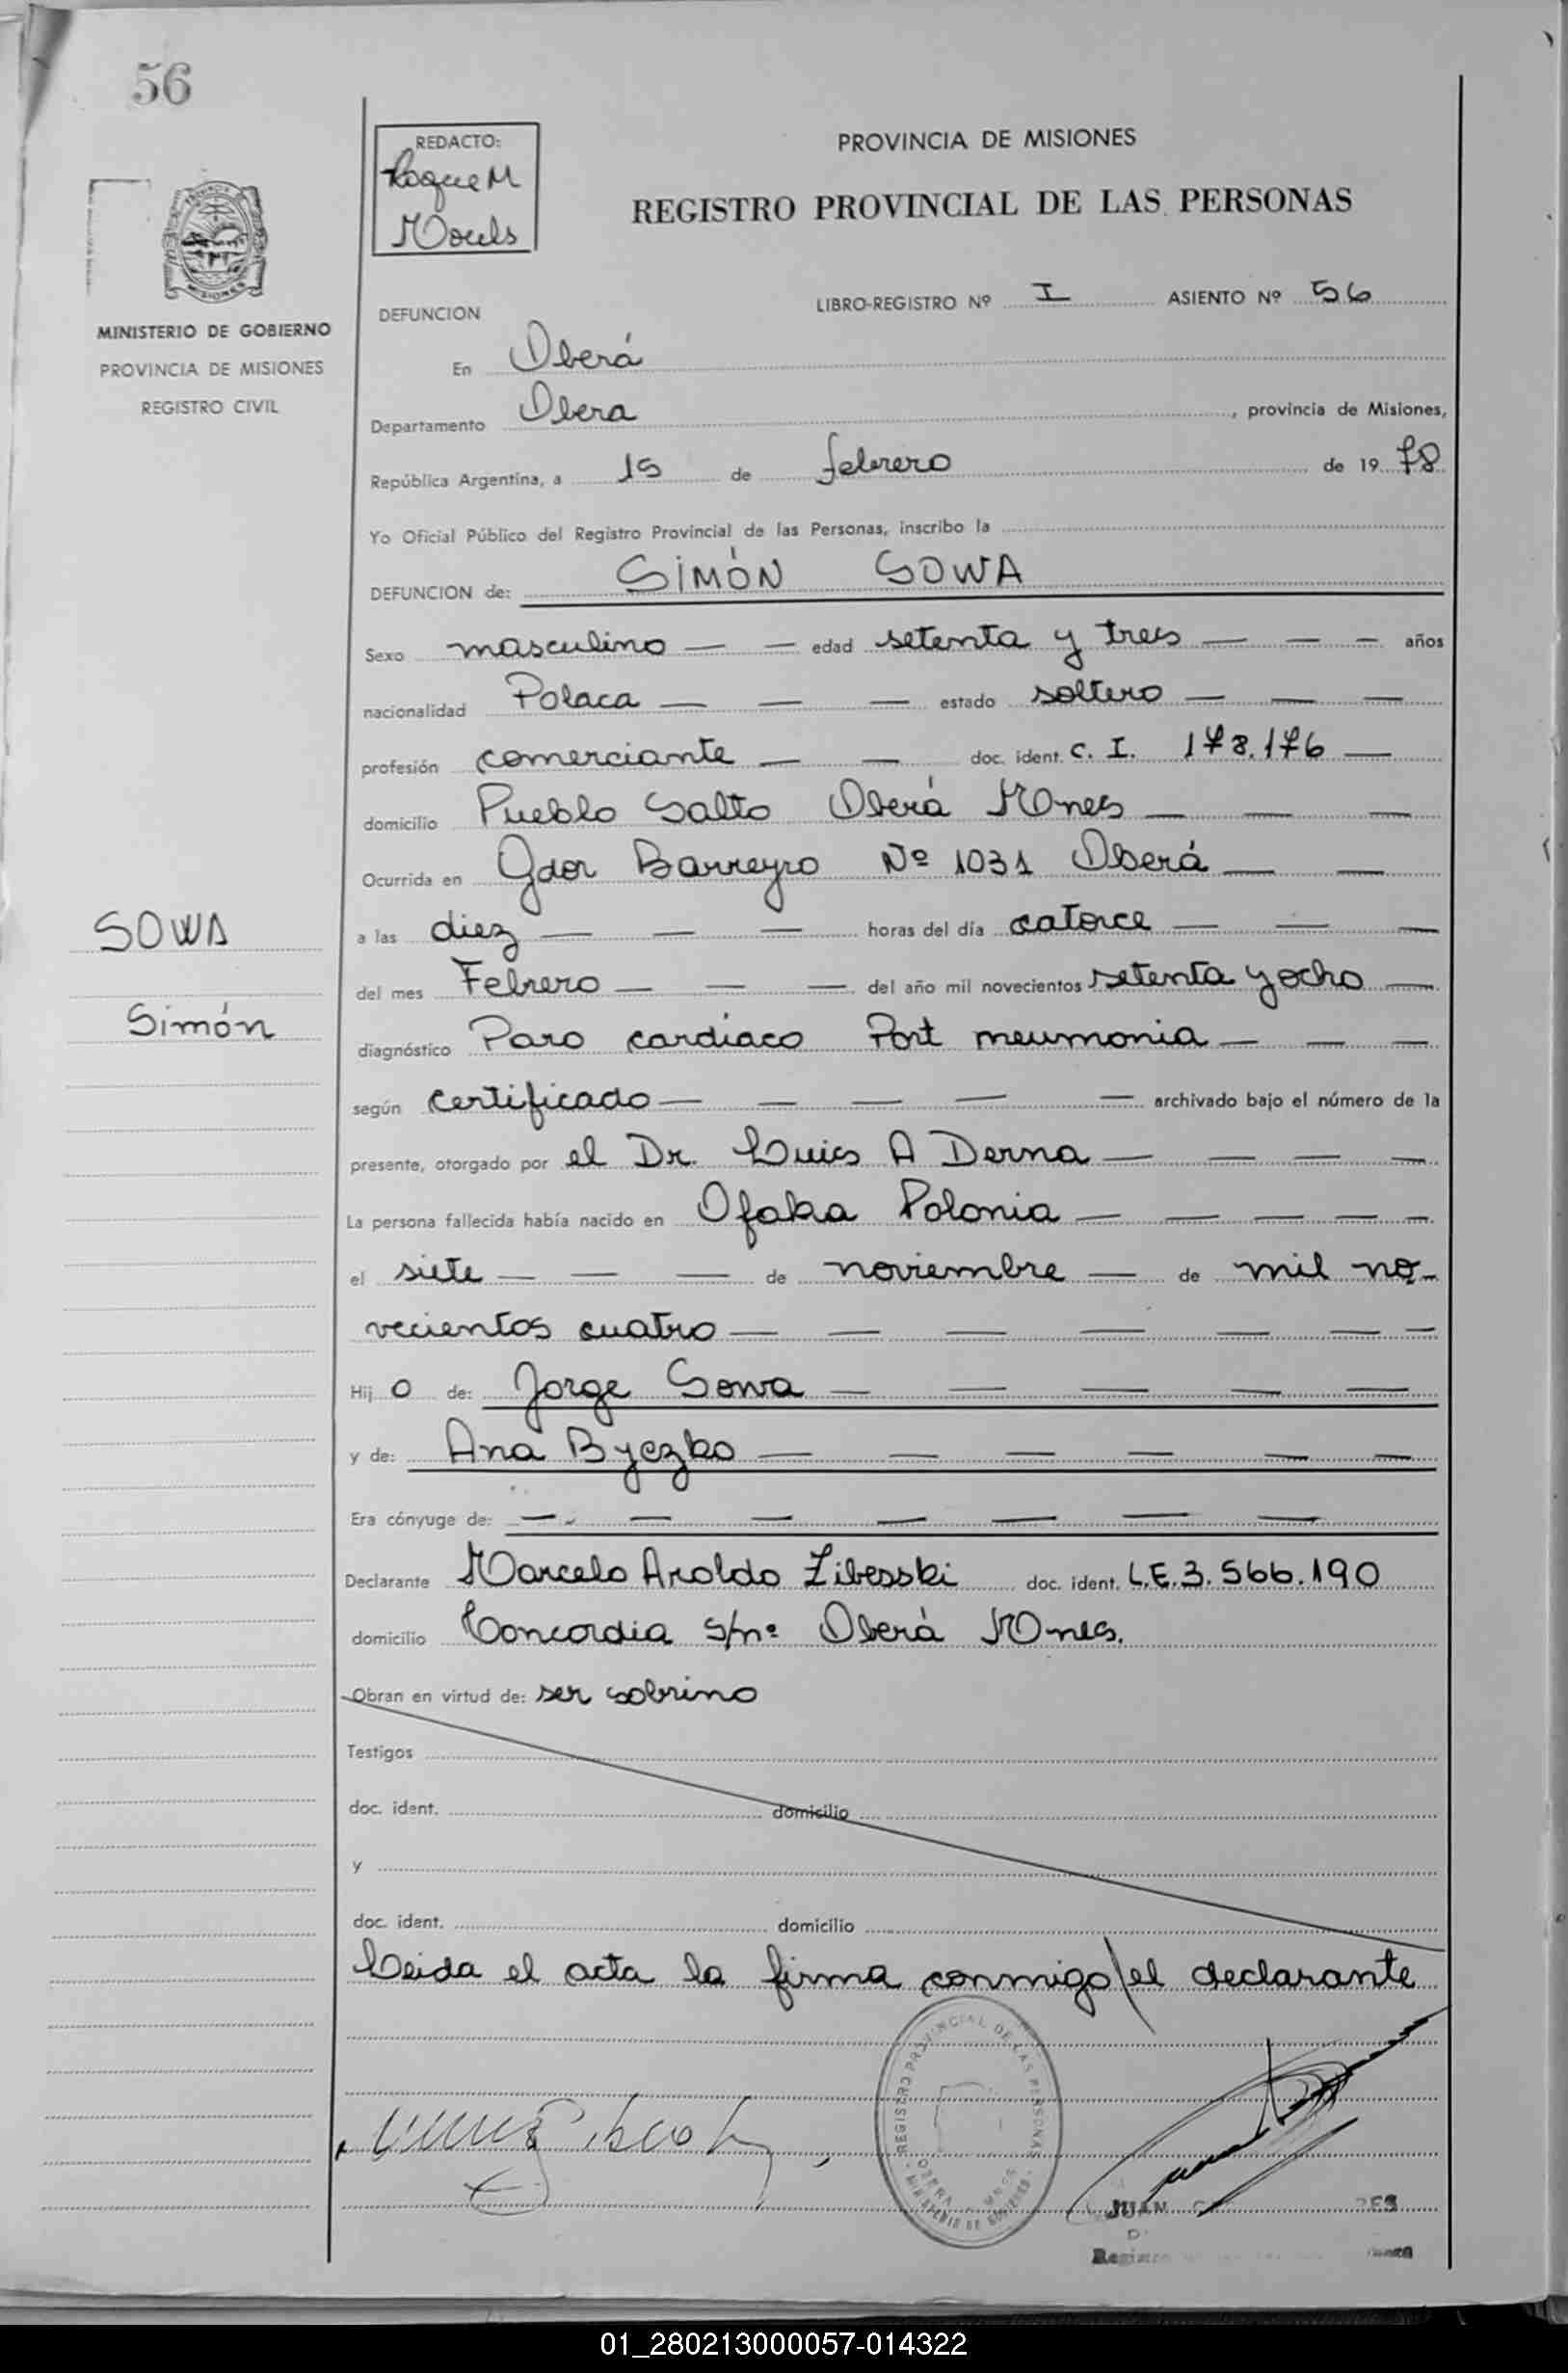 56
REDACTO:
Roque M
MISIONES
MINISTERIO DE GOBIERNO
PROVINCIA DE MISIONES
REGISTRO CIVIL
PROVINCIA DE MISIONES
REGISTRO PROVINCIAL DE LAS PERSONAS
DEFUNCION LIBRO-REGISTRO Nº I ASIENTO Nº 56
En Oberá
Departamento Obera, provincia de Misiones,
República Argentina, a 15 de febrero de 1978
Yo Oficial Público del Registro Provincial de las Personas, inscribo la
DEFUNCION de: SIMÓN SOWA
Sexo masculino — — edad setenta y tres — — — años
nacionalidad Polaca — — — estado soltero — — —
profesión comerciante — — doc. ident. C. I. 178.176 —
domicilio Pueblo Salto Oberá Mnes — — —
Ocurrida en Gdor Barreyro Nº 1031 Oberá — —
SOWA
a las diez — — — horas del día catorce — — —
del mes Febrero — — — del año mil novecientos setenta y ocho —
Simón
diagnóstico Paro cardíaco Port neumonia — — —
según certificado — — — — — archivado bajo el número de la
presente, otorgado por el Dr. Luis A Derna — — — —
La persona fallecida había nacido en Ofaka Polonia — — — — —
el siete — — — de noviembre — de mil no-
vecientos cuatro — — — — — — —
Hijo de: Jorge Sowa — — — — —
y de: Ana Byczko — — — — — —
Era cónyuge de: — — — — — — —
Declarante Marcelo Aroldo Zibesski doc. ident. L.E. 3.566.190
domicilio Concordia s/nº Oberá Mnes.
Obran en virtud de: ser sobrino
Testigos
doc. ident. domicilio
y
doc. ident. domicilio
Leida el acta la firma conmigo/el declarante
REGISTRO PROVINCIAL DE LAS PERSONAS
OBERA MNES
MINISTERIO DE GOBIERNO
JUAN
01_280213000057-014322